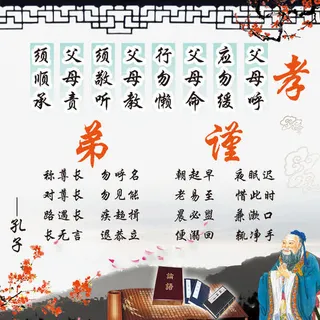 孝
父母呼
应勿缓
父母命
行勿懒
父母教
须敬听
父母责
须顺承
谨
朝起早 夜眠迟
老易至 惜此时
晨必盥 兼漱口
便溺回 辄净手
弟
称尊长 勿呼名
对尊长 勿见能
路遇长 疾趋揖
长无言 退恭立
——孔子
論語